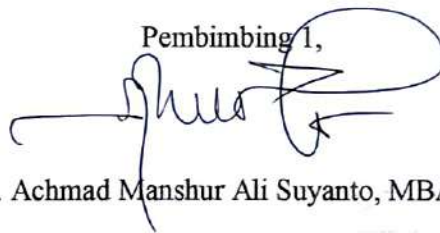 Pembimbing 1,
. Achmad Manshur Ali Suyanto, MBA